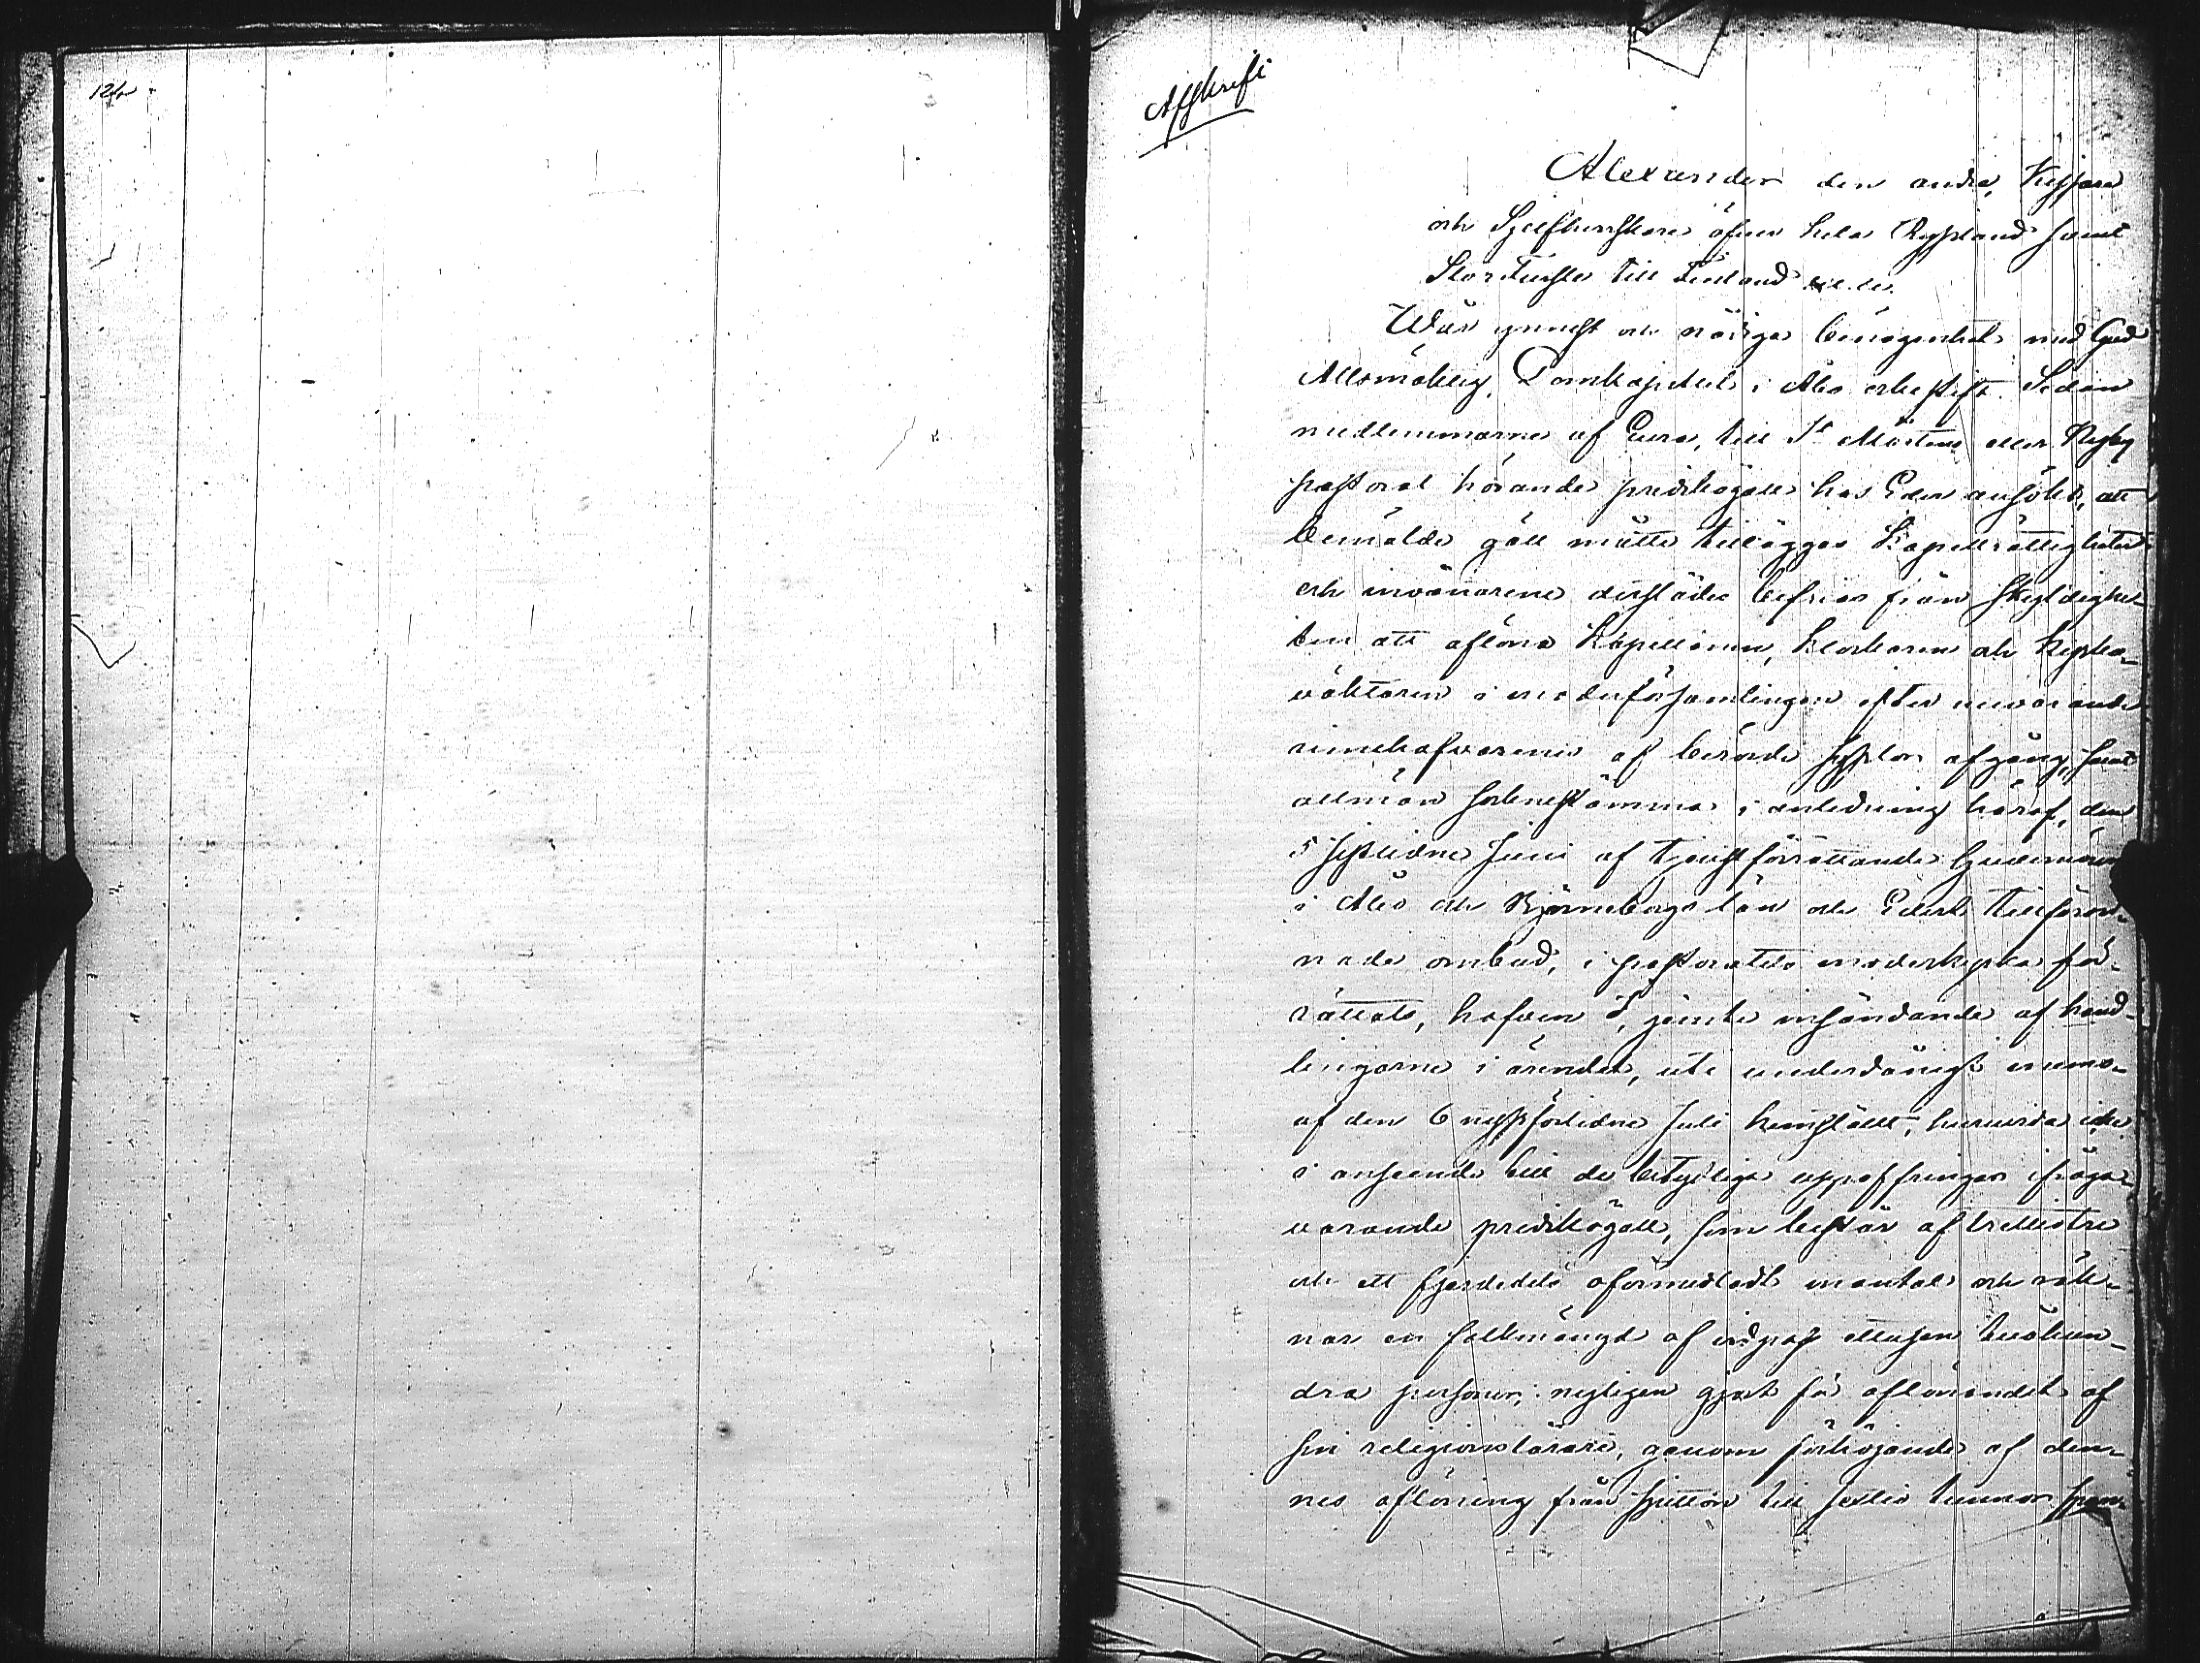 124
Afskrift
Alexander den andre, Kejsare
och Sjelfherrskare öfver hela Ryssland samt
Storfurste till Finland etc. etc.
Wår ynnest och nådiga benägenhet med Gud
Allsmäktig, Domkapitel i Åbo erkestift. Sedan
medlemmarne af Eura, till St Mårtens eller
pastorat hörande predikogäll hos Eder ansökt, att
bemälde gäll måtte tilläggas Kapellrättigheter
och invånarene derstädes befrias från skyldighe-
ten att aflöna Kapellanen, Klockaren och Kyrko-
väktaren i moderförsamlingen efter nuvarande
innehafvarenes af berörde sysslor afgång, samt
allmän sockenstämma i anledning häraf, den
5 sistlidne Juni af tjenstförrättande Guvernören
i Åbo och Björneborgs län och Edert tillförord-
nade ombud, i pastoratets moderkyrka för-
rättats, hafven I, jemte insändande af hand-
lingarne i ärendet, uti underdånigt memo-
af den 6 nästförlidne Juli hemstält, huruvida icke
i anseende till de betydliga uppoffringar ifråga-
varande predikogäll, som består af
och ett fjerdedels oförmedladt mantal och räk-
nar en folkmängd af ettusen tvåhun-
dra personer, nyligen gjort för aflönandet af
sin religionslärare, genom förhöjande af den-
nes aflöning från till sextio tunnor span-